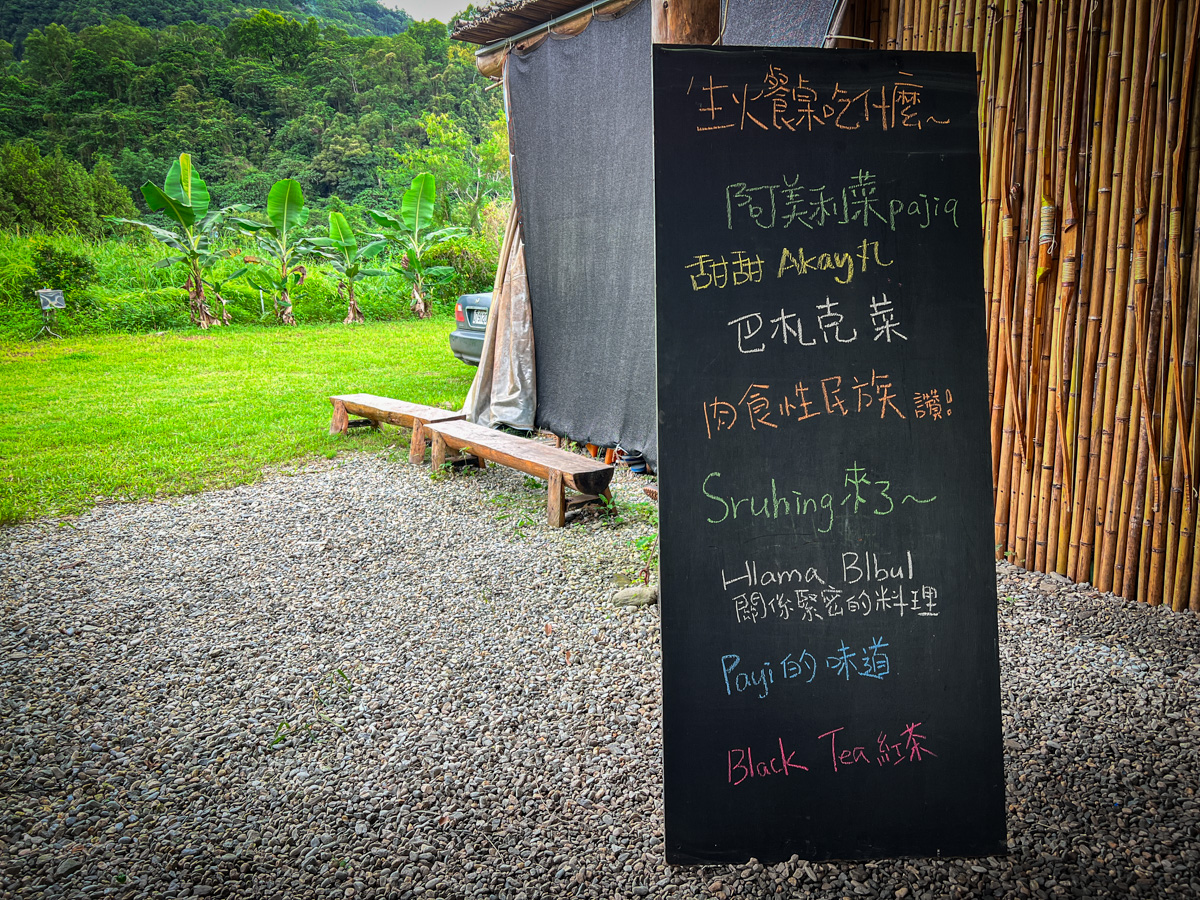 生火餐桌吃什麼~
阿美利菜pajiq
甜甜 Akay丸
巴札克菜
肉食性民族 讚!
Sruhing來了~
Hlama Blbul
關係緊密的料理
Payi的味道
Black Tea 紅茶